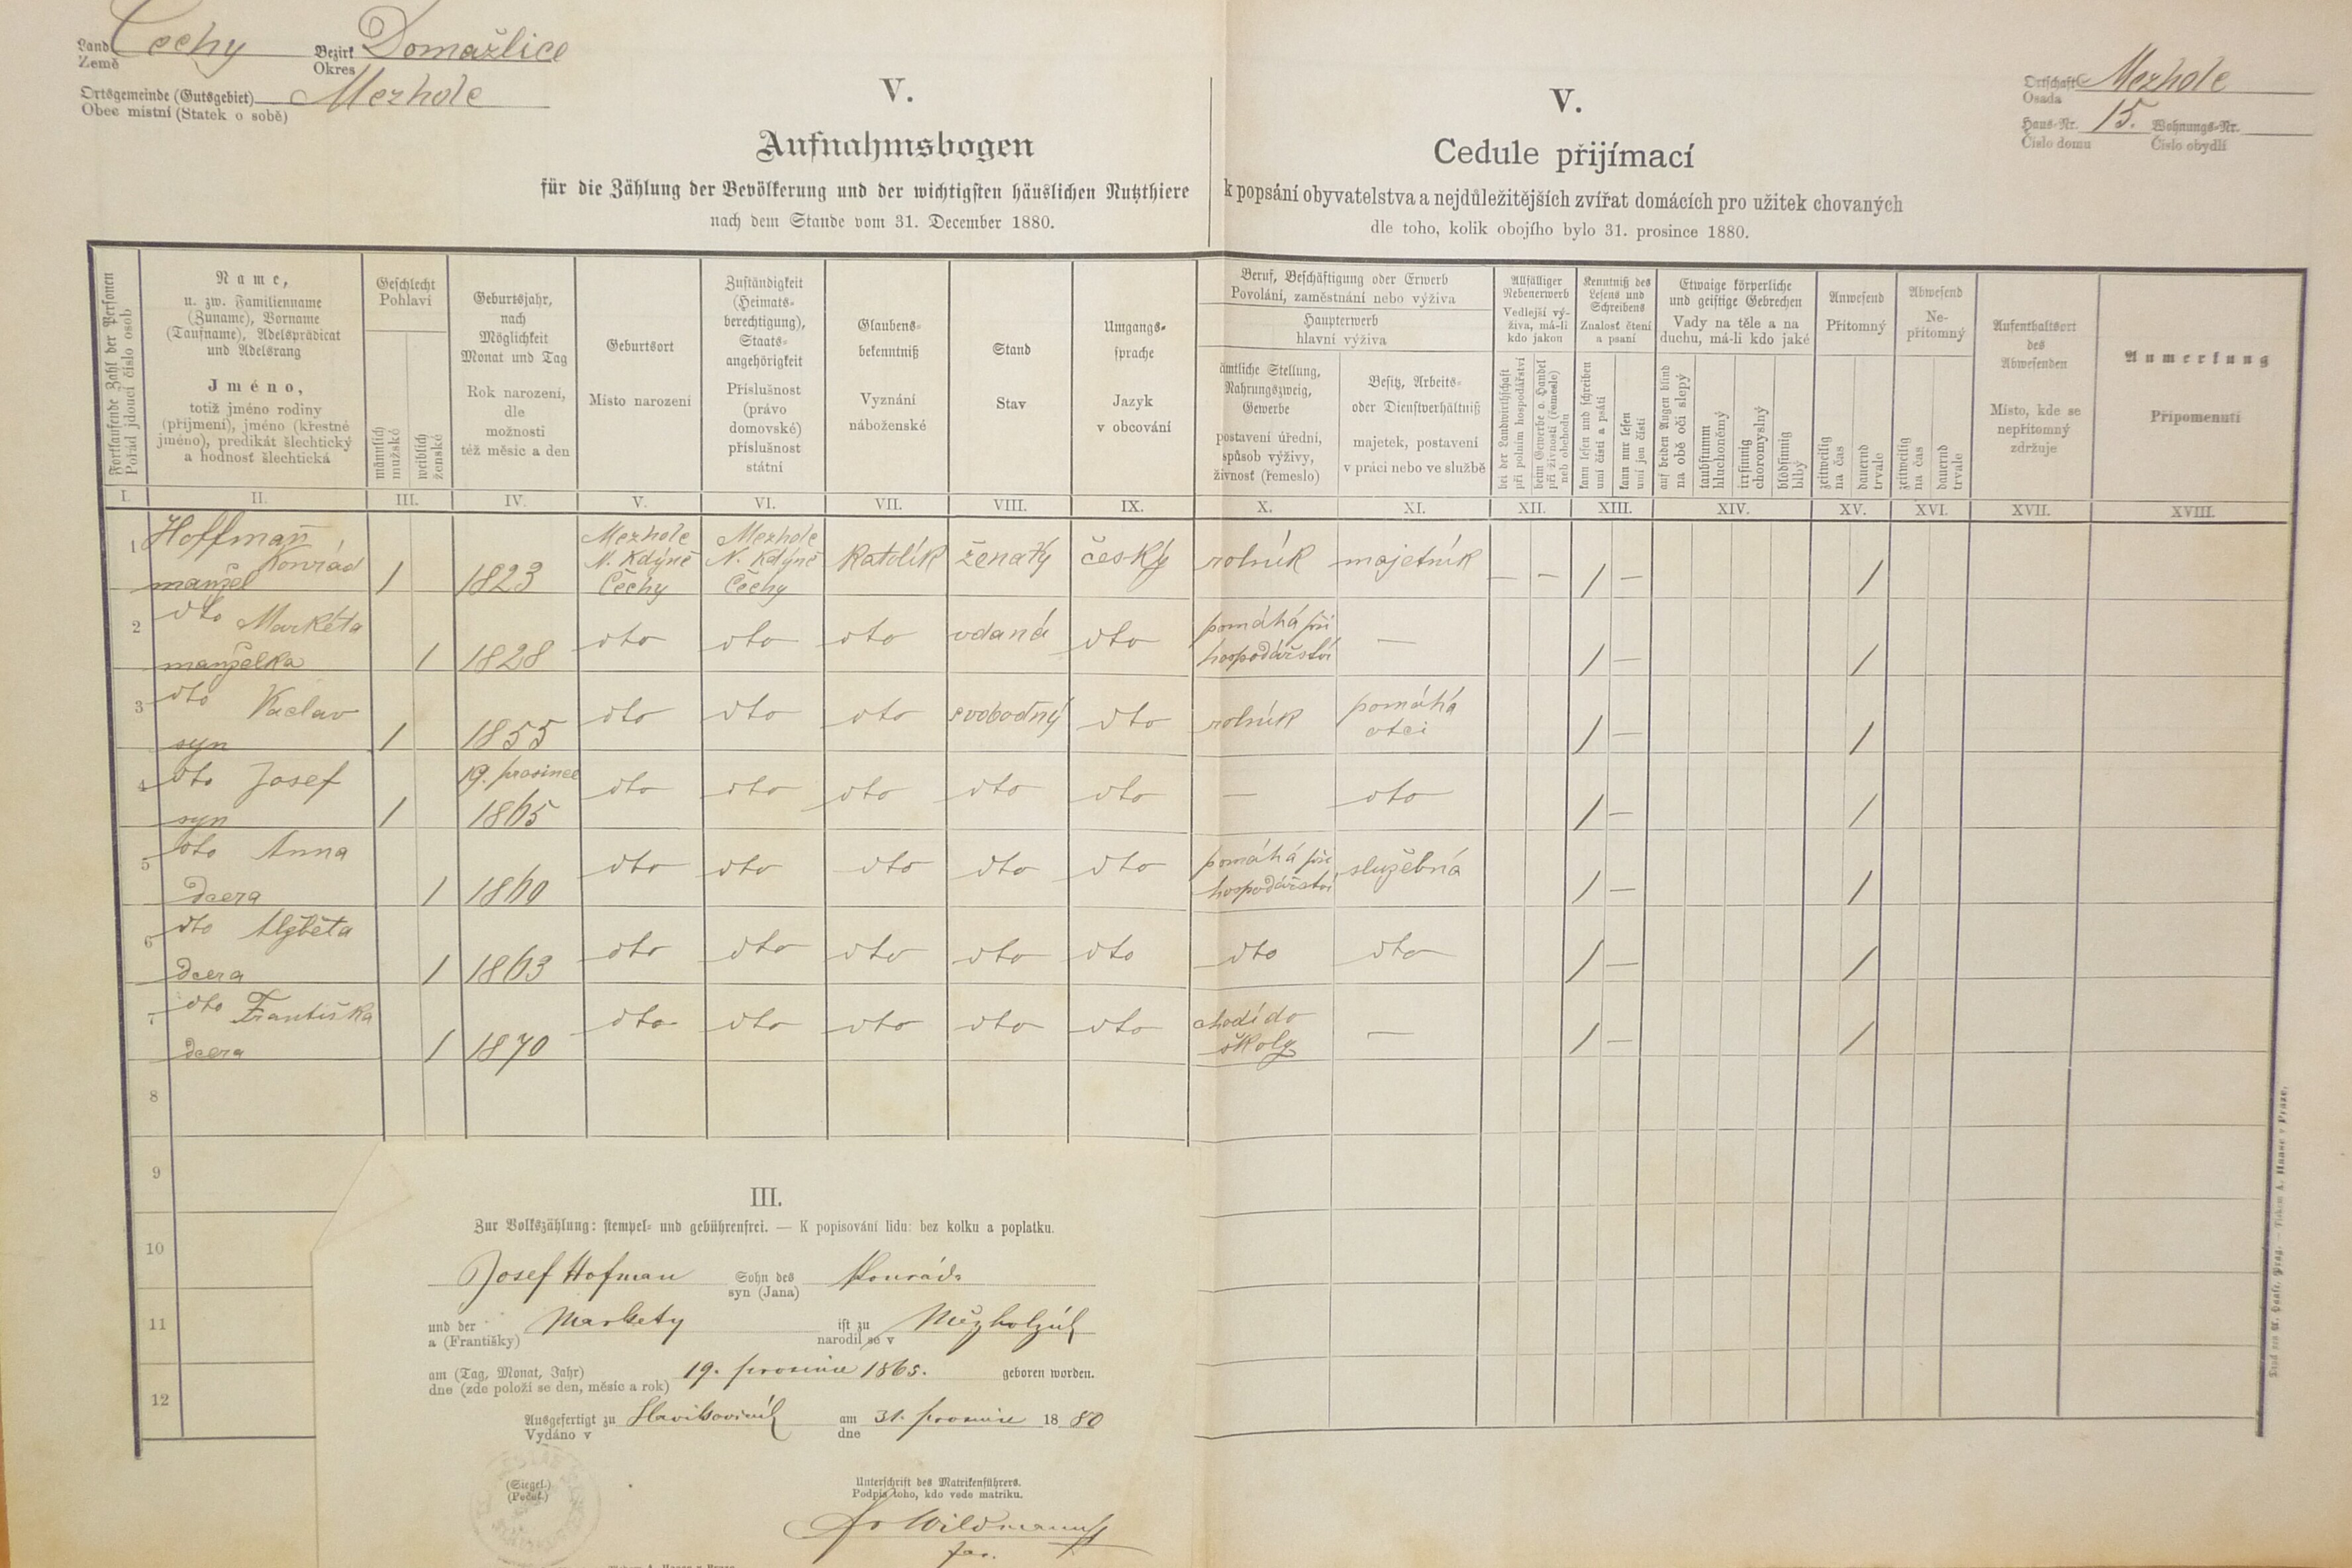 Land Čechy Bezirk Domažlice
Země Okres
Ortsgemeinde (Gutsgebiet) Mezhole
Obec místní (Statek o sobě)
V.
Aufnahmsbogen
für die Zählung der Bevölkerung und der wichtigsten häuslichen Nutzthiere
nach dem Stande vom 31. December 1880.
V.
Cedule přijímací
k popsání obyvatelstva a nejdůležitějších zvířat domácích pro užitek chovaných
dle toho, kolik obojího bylo 31. prosince 1880.
Ortschaft Mezhole
Osada
Haus-Nr. 15. Wohnungs-Nr.
Číslo domu Číslo obydlí
Fortlaufende Zahl der Personen
Pořád jdoucí číslo osob
Name,
u. zw. Familienname
(Zuname), Vorname
(Taufname), Adelsprädicat
und Adelsrang
Jméno,
totiž jméno rodiny
(příjmení), jméno (křestné
jméno), predikát šlechtický
a hodnosť šlechtická
Geschlecht
Pohlaví
männlich
mužské
weiblich
ženské
Geburtsjahr,
nach
Möglichkeit
Monat und Tag
Rok narození,
dle
možnosti
též měsíc a den
Geburtsort
Místo narození
Zuständigkeit
(Heimats-
berechtigung),
Staats-
angehörigkeit
Příslušnost
(právo
domovské)
příslušnost
státní
Glaubens-
bekenntniß
Vyznání
náboženské
Stand
Stav
Umgangs-
sprache
Jazyk
v obcování
Beruf, Beschäftigung oder Erwerb
Povolání, zaměstnání nebo výživa
Haupterwerb
hlavní výživa
ämtliche Stellung,
Nahrungszweig,
Gewerbe
postavení úřední,
spůsob výživy,
živnosť (řemeslo)
Besitz, Arbeits-
oder Dienstverhältniß
majetek, postavení
v práci nebo ve službě
Allfälliger
Nebenerwerb
Vedlejší vý-
živa, má-li
kdo jakou
bei der Landwirthschaft
při polním hospodářství
beim Gewerbe o. Handel
při živnosti (řemesle)
neb obchodu
Kenntniß des
Lesens und
Schreibens
Znalosť čtení
a psaní
kann lesen und schreiben
umí čísti a psáti
kann nur lesen
umí jen čísti
Etwaige körperliche
und geistige Gebrechen
Vady na těle a na
duchu, má-li kdo jaké
auf beiden Augen blind
na obě oči slepý
taubstumm
hluchoněmý
irrsinnig
choromyslný
blödsinnig
blbý
Anwesend
Přítomný
zeitweilig
na čas
dauernd
trvale
Abwesend
Ne-
přítomný
zeitweilig
na čas
dauernd
trvale
Aufenthaltsort
des
Abwesenden
Místo, kde se
nepřítomný
zdržuje
Anmerkung
Připomenutí
I. II. III. IV. V. VI. VII. VIII. IX. X. XI. XII. XIII. XIV. XV. XVI. XVII. XVIII.
Hoffmañ Mezhole Mezhole
1 Konrád N. Kdýně N. Kdýně katolík ženatý český rolník majetník
manžel 1 1823 Čechy Čechy — — / — /
2 dto Markéta dto dto dto vdaná dto pomáhá při —
manželka 1 1828 hospodářství / — /
3 dto Václav dto dto dto svobodný dto rolník pomáhá
syn 1 1855 otci / — /
4 dto Josef 19. prosince dto dto dto dto dto — dto
syn 1 1865 / — /
5 dto Anna dto dto dto dto dto pomáhá při služebná
dcera 1 1860 hospodářství / — /
6 dto Alžběta dto dto dto dto dto dto dto
dcera 1 1863 / — /
7 dto Františka dto dto dto dto dto chodí do —
dcera 1 1870 školy / — /
8
9
10
11
12
III.
Zur Volkszählung: stempel- und gebührenfrei. — K popisování lidu: bez kolku a poplatku.
Josef Hofman Sohn des Konráda
syn (Jana)
und der Markety ist zu
a (Františky) narodil se v
am (Tag, Monat, Jahr) 19. prosince 1865. geboren worden.
dne (zde položí se den, měsíc a rok)
Ausgefertigt zu am 31. prosince 18 80
Vydáno v dne
(Siegel.)
(Pečeť.)
Unterschrift des Matrikenführers.
Podpis toho, kdo vede matriku.